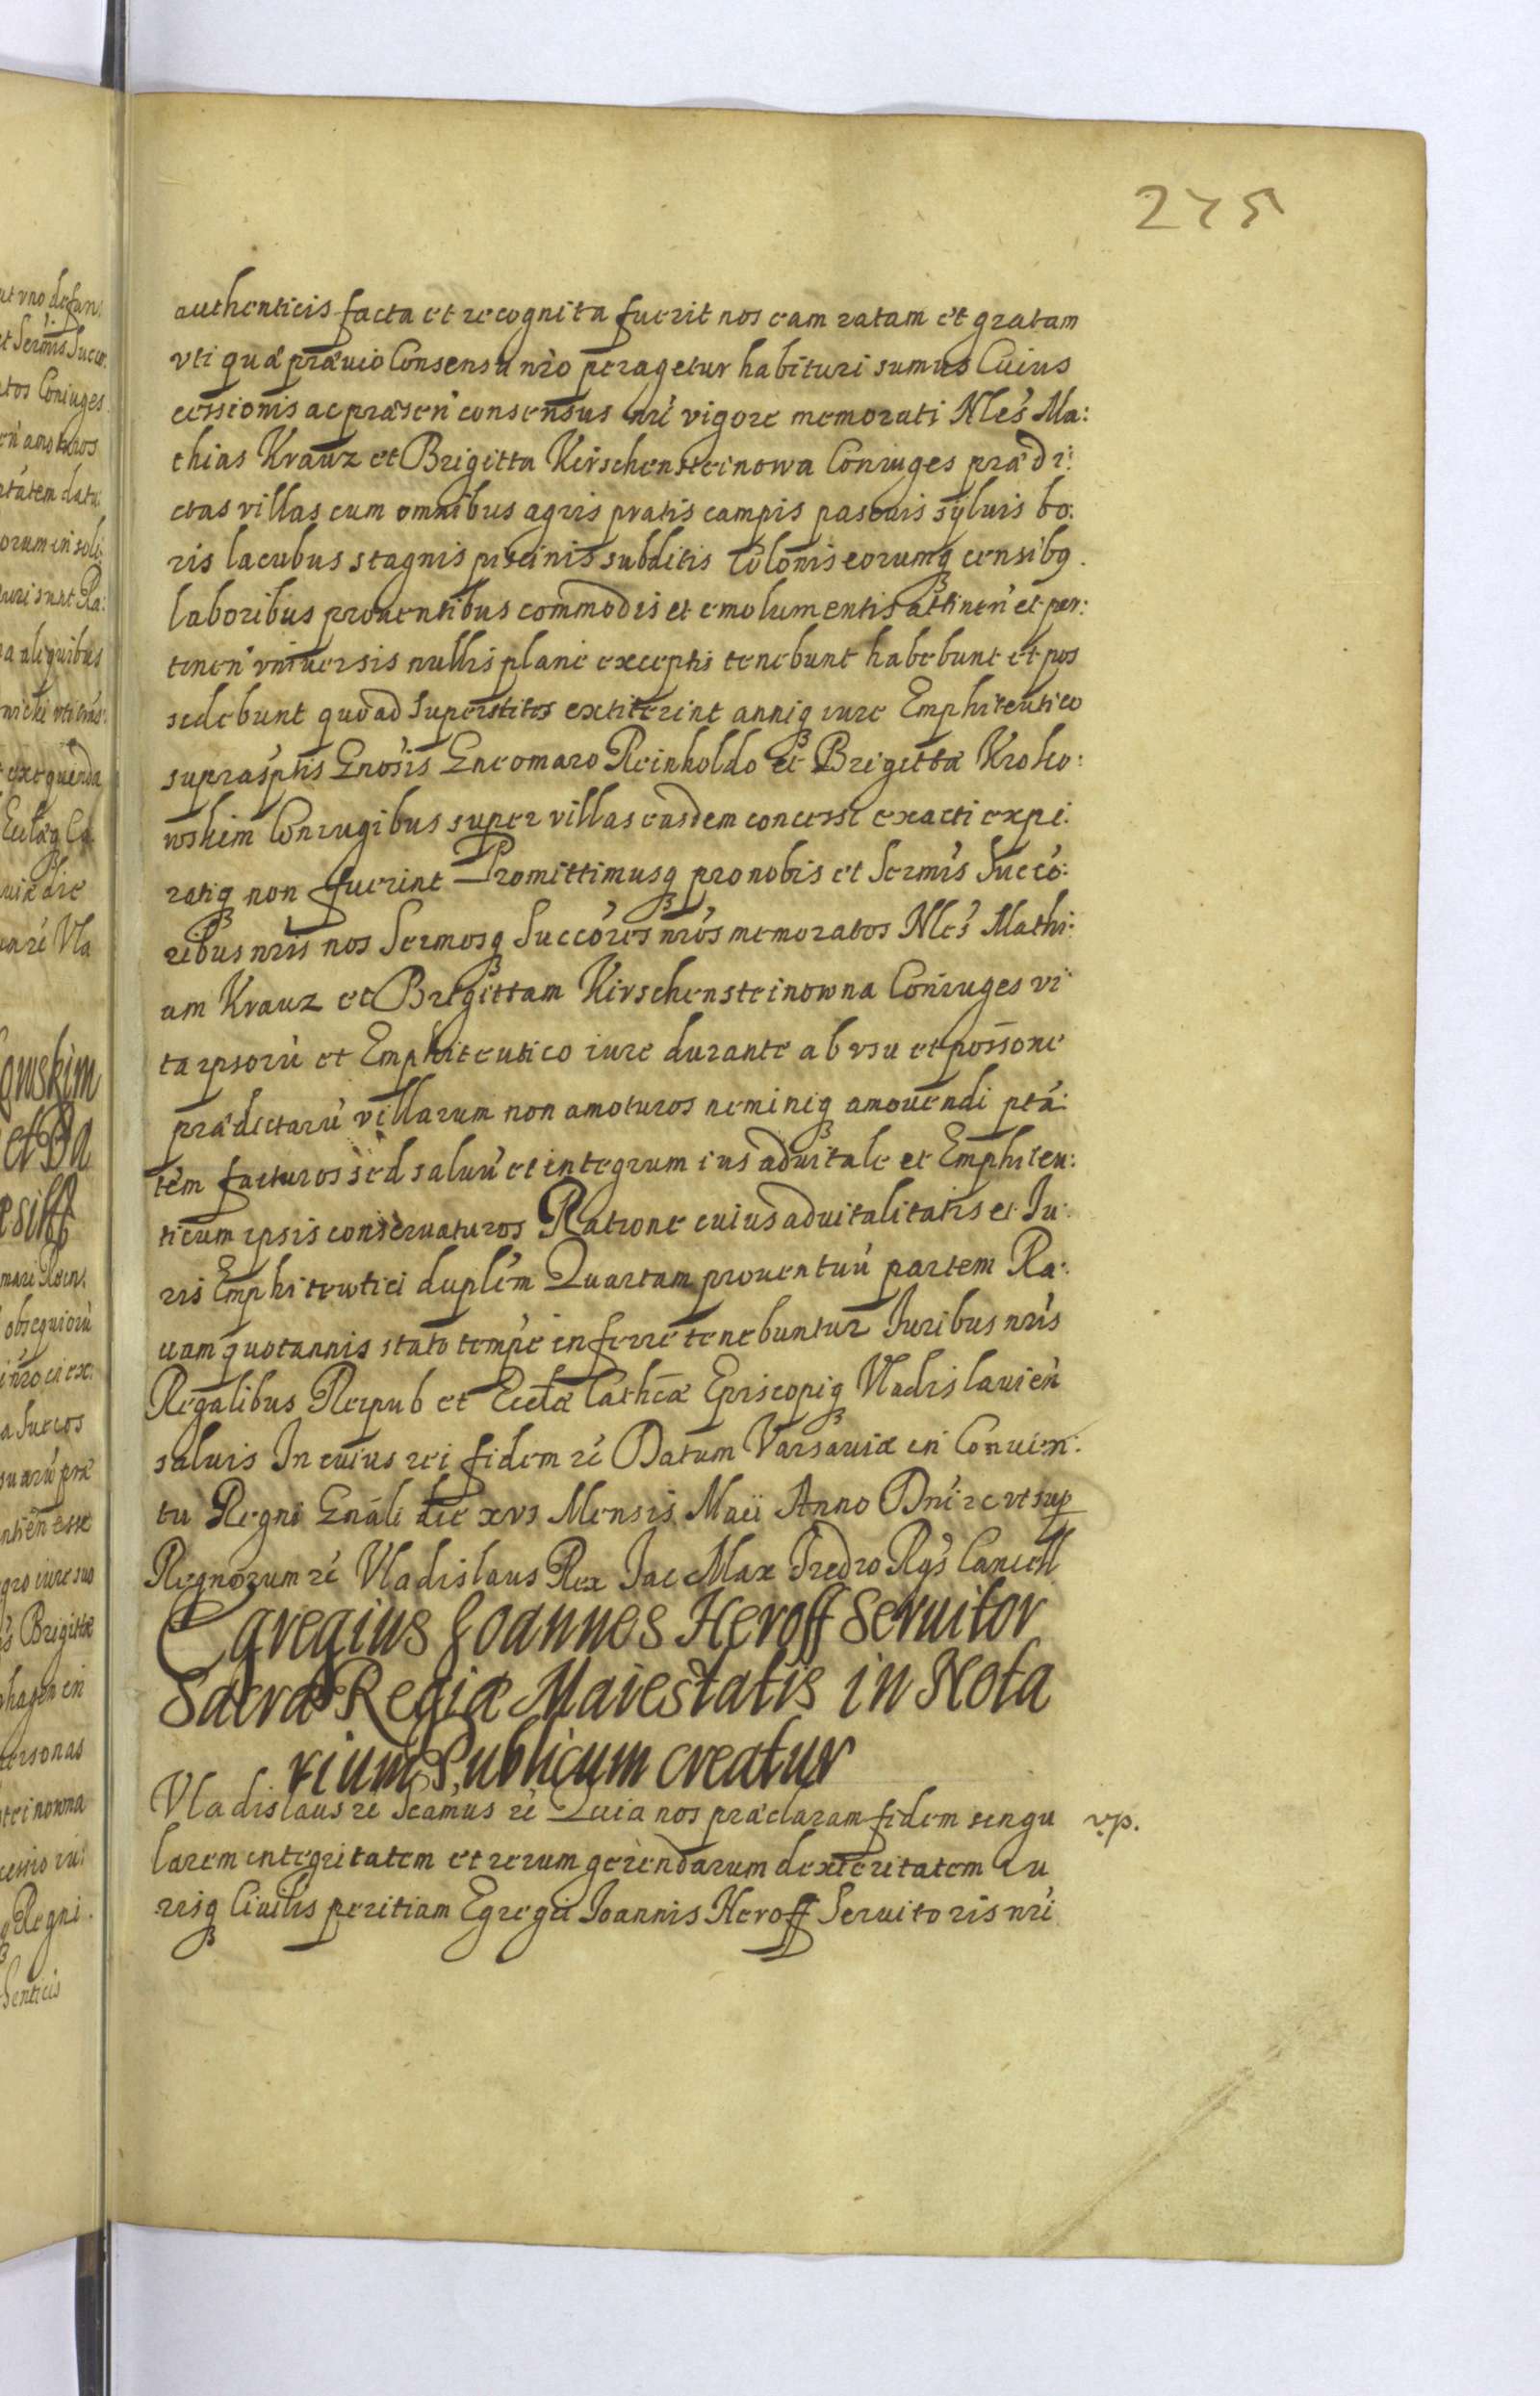 275
authenticis facta et recognita fuerit nos eam ratam et gratam
vti quæ præuio Consensu nr̃o peragetur habituri sumus Cuius
cessionis ac præsen̄ consensus nr̃i vigore memorati Nles Ma:
thias Krauz et Brigitta Kirschensteinowa Coniuges prædi:
ctas villas cum omnibus agris pratis campis pascuis syluis bo:
ris lacubus stagnis piscinis subditis Colonis eorumq censibq.
laboribus prouentibus commodis et emolumentis attinen̄ et per:
tinen̄ vniuersis nullis plane exceptis tenebunt habebunt et pos
sedebunt quoad superstites extiterint anniq iure Emphiteutico
suprasptis Gnosis Gneomaro Reinholdo et Brigitta Kroko:
wskim Coniugibus super villas easdem concessi exacti expi:
ratiq non fuerint Promittimusq pro nobis et Sermis Succo:
ribus nris nos Sermosq Succores nros memoratos Nles Mathi:
am Krauz et Brigittam Kirschensteinowna Coniuges vi
ta ipsorũ et Emphiteutico iure durante ab vsu et possone
prædictarũ villarum non amoturos neminiq amouendi ptá:
tem facturos sed saluũ et integrum ius aduitale et Emphiteu:
ticum ipsis conseruaturos Ratione cuius aduitalitatis et Iu:
ris Emphitewtici duplem Quartam prouentuũ partem Ra:
uam quotannis stato tempe inferre tenebuntur Iuribus nris
Regalibus Reipub et Ecclæ Cathcæ Episcopiq Vladislauien̄
saluis In cuius rei fidem rẽ Datum Varsauiæ in Conuen:
tu Regni Gnáli die xvi Mensis Maii Anno Dni rc vt sup
Regnorum rẽ Vladislaus Rex Iac Max Fredro Rgs Cancell
Egregius Joannes Heroff Seruitor
Sacræ Regiæ Maiestatis in Nota
rium Publicum creatur
Vladislaus rẽ Scamus rẽ Quia nos præclaram fidem singu
vp.
larem integritatem et rerum gerendarum dexteritatem Iu
risq Ciuilis peritiam Egregii Joannis Heroff Seruitoris nri